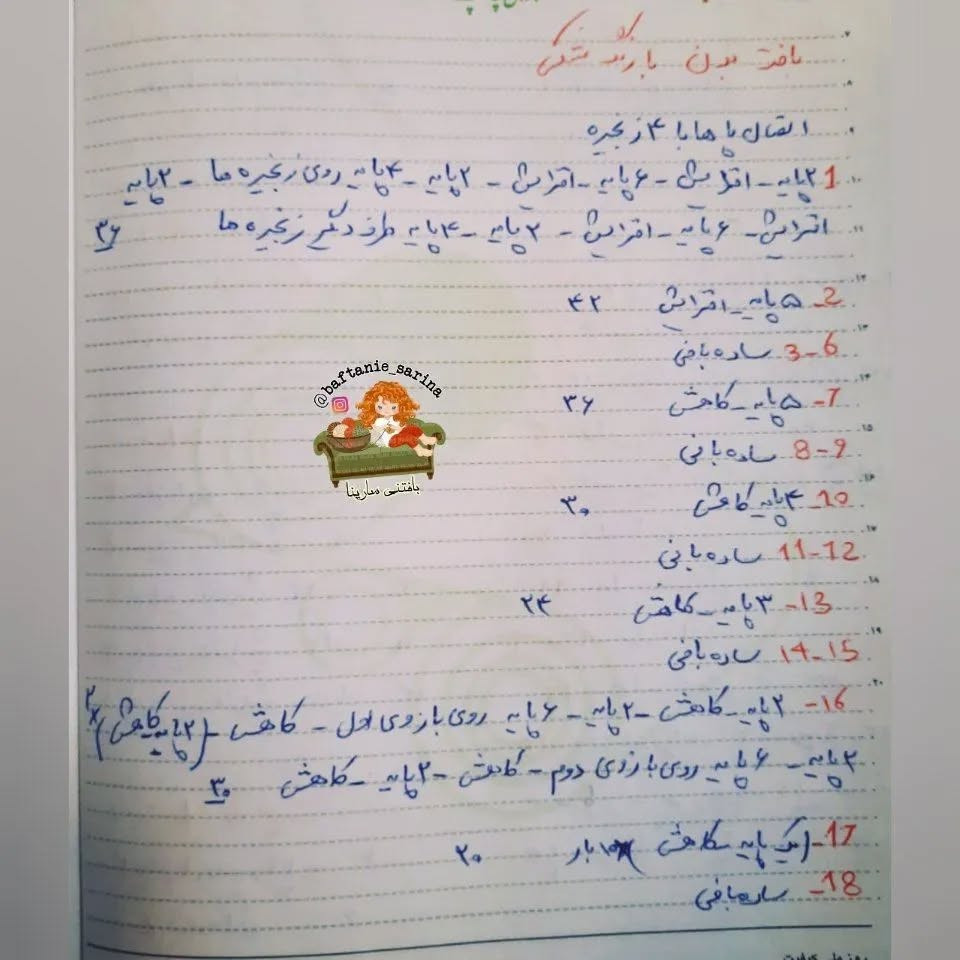 بافت بدن با رنگ مشکی
اتصال پا ها با ۴ زنجیره
1 ۲پایه - افزایش - ۶ پایه - افزایش - ۲پایه - ۴پایه روی زنجیره ها - ۲پایه
افزایش - ۶ پایه - افزایش - ۲ پایه - ۴پایه طرف دیگر زنجیره ها ۳۶
2 - ۵ پایه - افزایش ۴۲
3-6 ساده بافی
7 - ۵پایه - کاهش ۳۶
8-9 ساده بافی
10 - ۴پایه کاهش ۳۰
11-12 ساده بافی
13 - ۳ پایه - کاهش ۲۴
14-15 ساده بافی
16 - ۲پایه - کاهش - ۲پایه - ۶ پایه روی بازوی اول - کاهش - (۲پایه کاهش)×۲
۲پایه - ۶ پایه روی بازوی دوم - کاهش - ۲پایه - کاهش ۳۰
17 - (یک پایه - کاهش) ۱۰ بار ۲۰
18 - ساده بافی
@baftanie_sarina
بافتنی سارینا